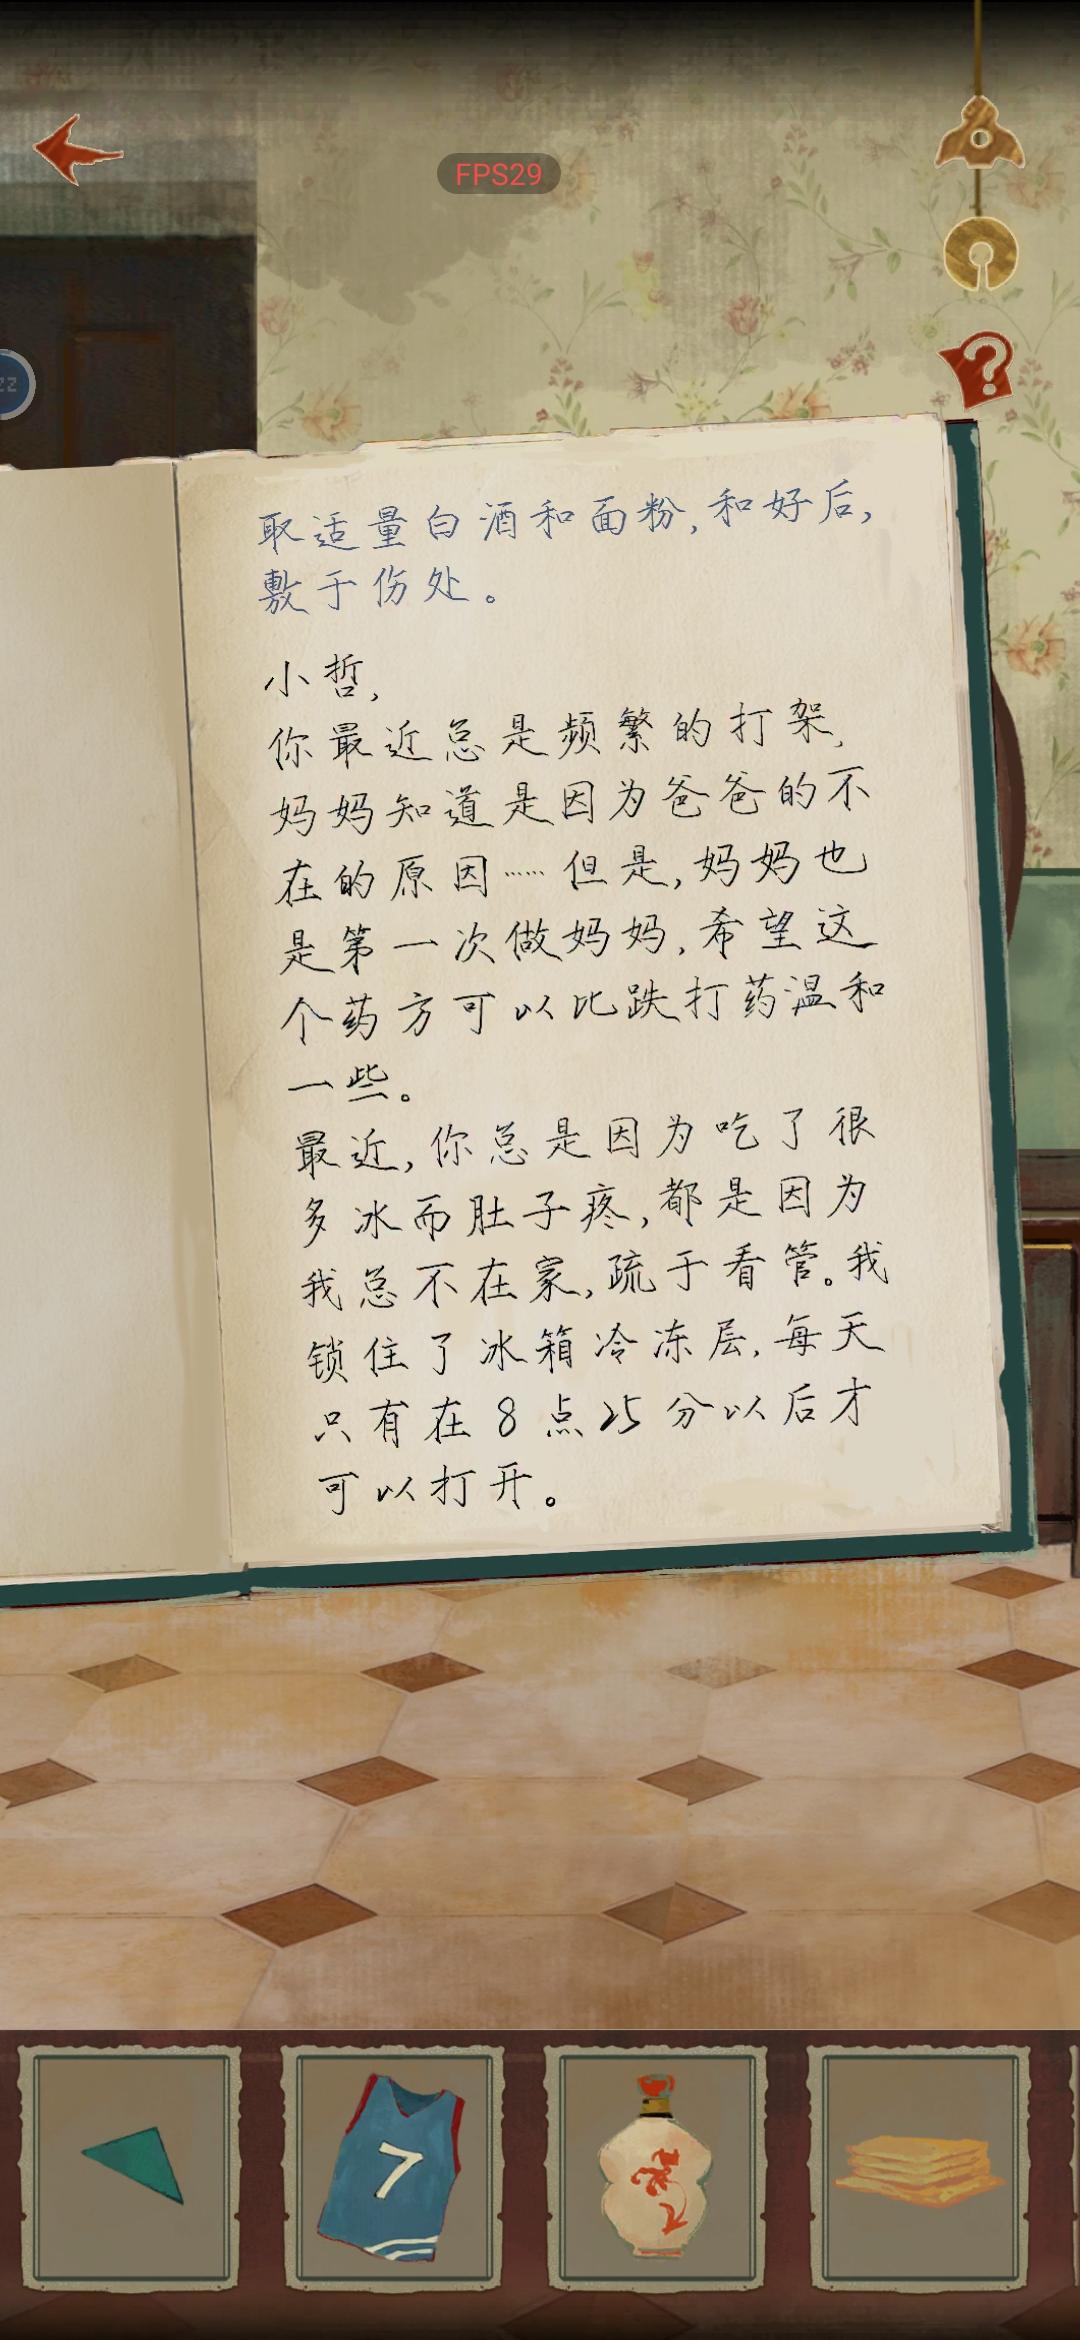 FPS29
zz
取适量白酒和面粉,和好后,
敷于伤处。
小哲,
你最近总是频繁的打架,
妈妈知道是因为爸爸的不
在的原因……但是,妈妈也
是第一次做妈妈,希望这
个药方可以比跌打药温和
一些。
最近,你总是因为吃了很
多冰而肚子疼,都是因为
我总不在家,疏于看管。我
锁住了冰箱冷冻层,每天
只有在8点25分以后才
可以打开。
7